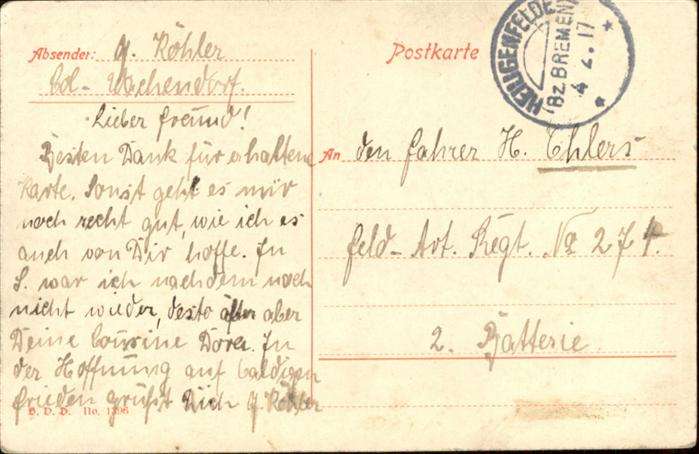 Absender: G. Köhler
Col- Wachendorf.
Lieber Freund!
Besten Dank für erhaltene
Karte. Sonst geht es mir
noch recht gut wie ich es
auch von Dir hoffe. In
S. war ich nachdem noch
nicht wieder, desto öfter aber
Deine Cousine Dora. In
der Hoffnung auf baldigen
Frieden grüßt Dich G. Köhler
B. D. D. No. 1396
Postkarte
HEILIGENFELDE
(Bz. BREMEN)
4 2. 17
An den Fahrer H. Ehlers
Feld- Art. Regt. No 271
2. Batterie